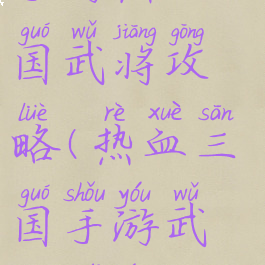 guó wǔ jiāng gōng
国武将攻
lüè rè xuè sān
略(热血三
guó shǒu yóu wǔ
国手游武